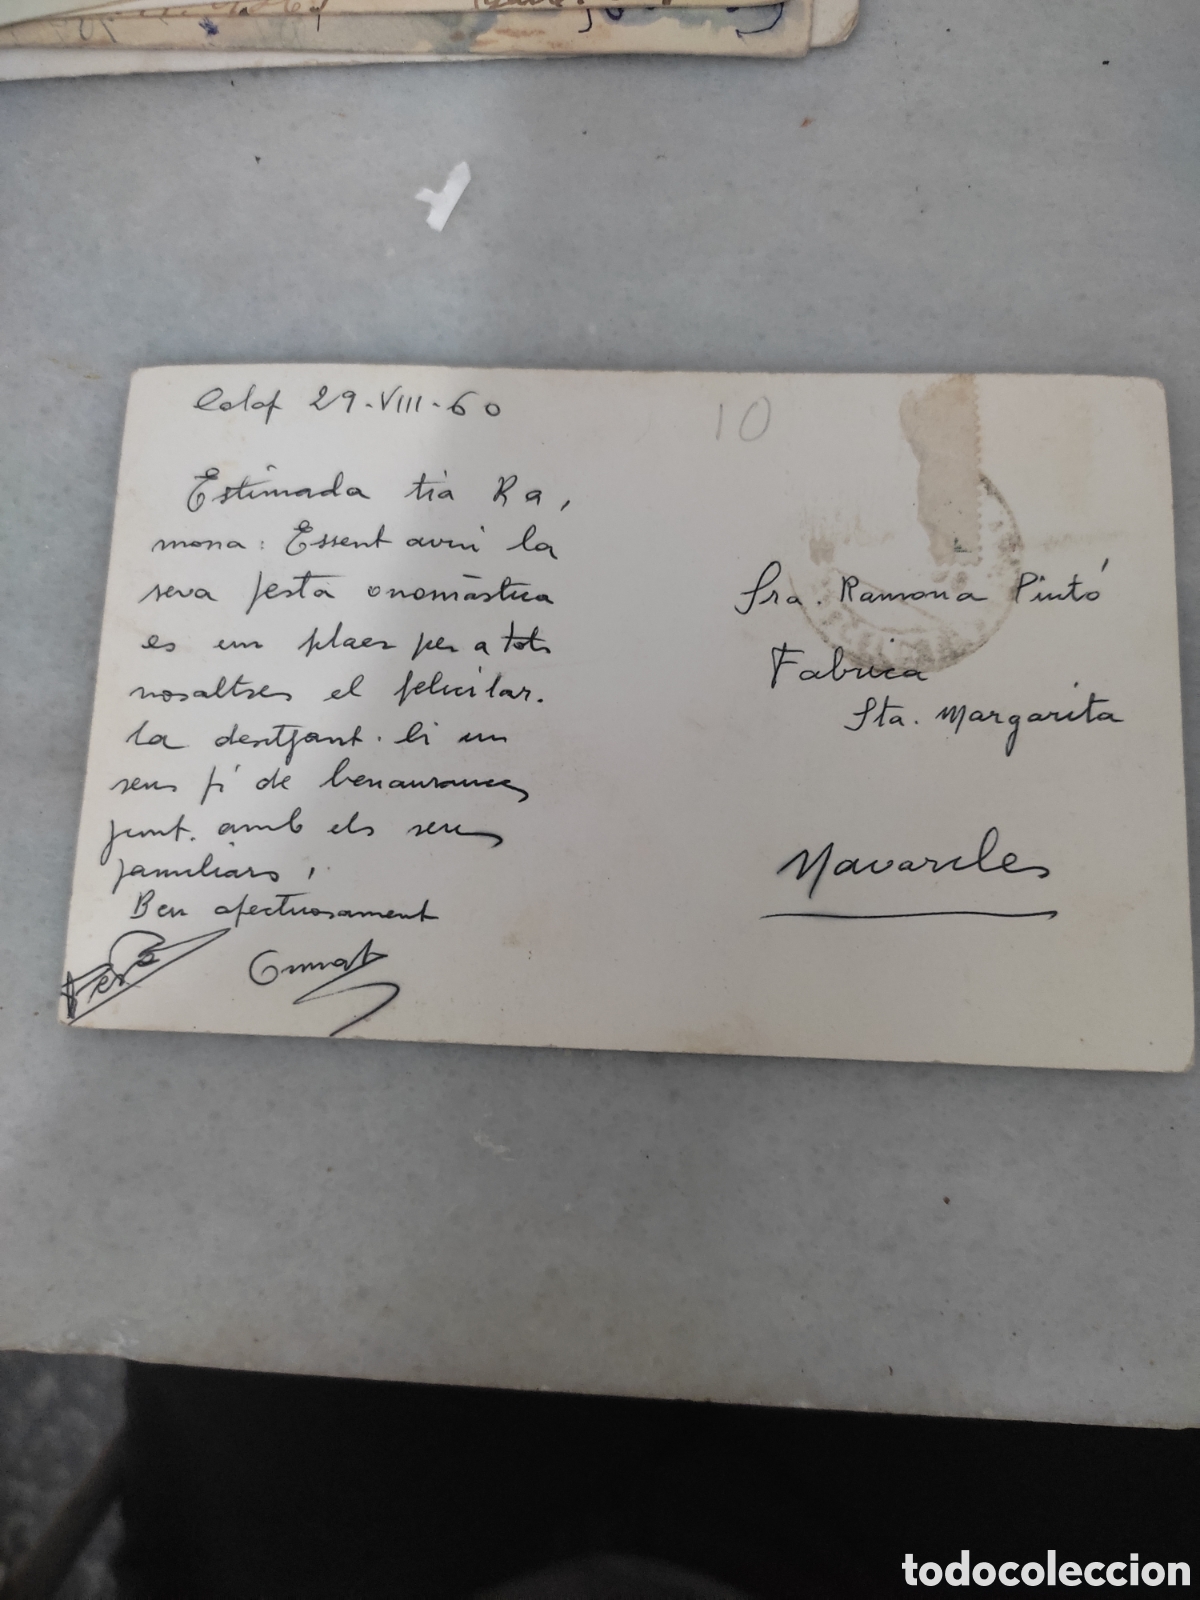 Calaf 29-VIII-60
10
Estimada tia Ra,
mona: Essent avui la
seva festa onomàstica
es un plaer per a tots
nosaltres el felicitar.
la desitjant. li un
sens fi de benaurances
junt. amb els seus
familiars,
Ben afectuosament
Sra. Ramona Pintó
Fabrica
Sta. Margarita
Navarcles
todocoleccion